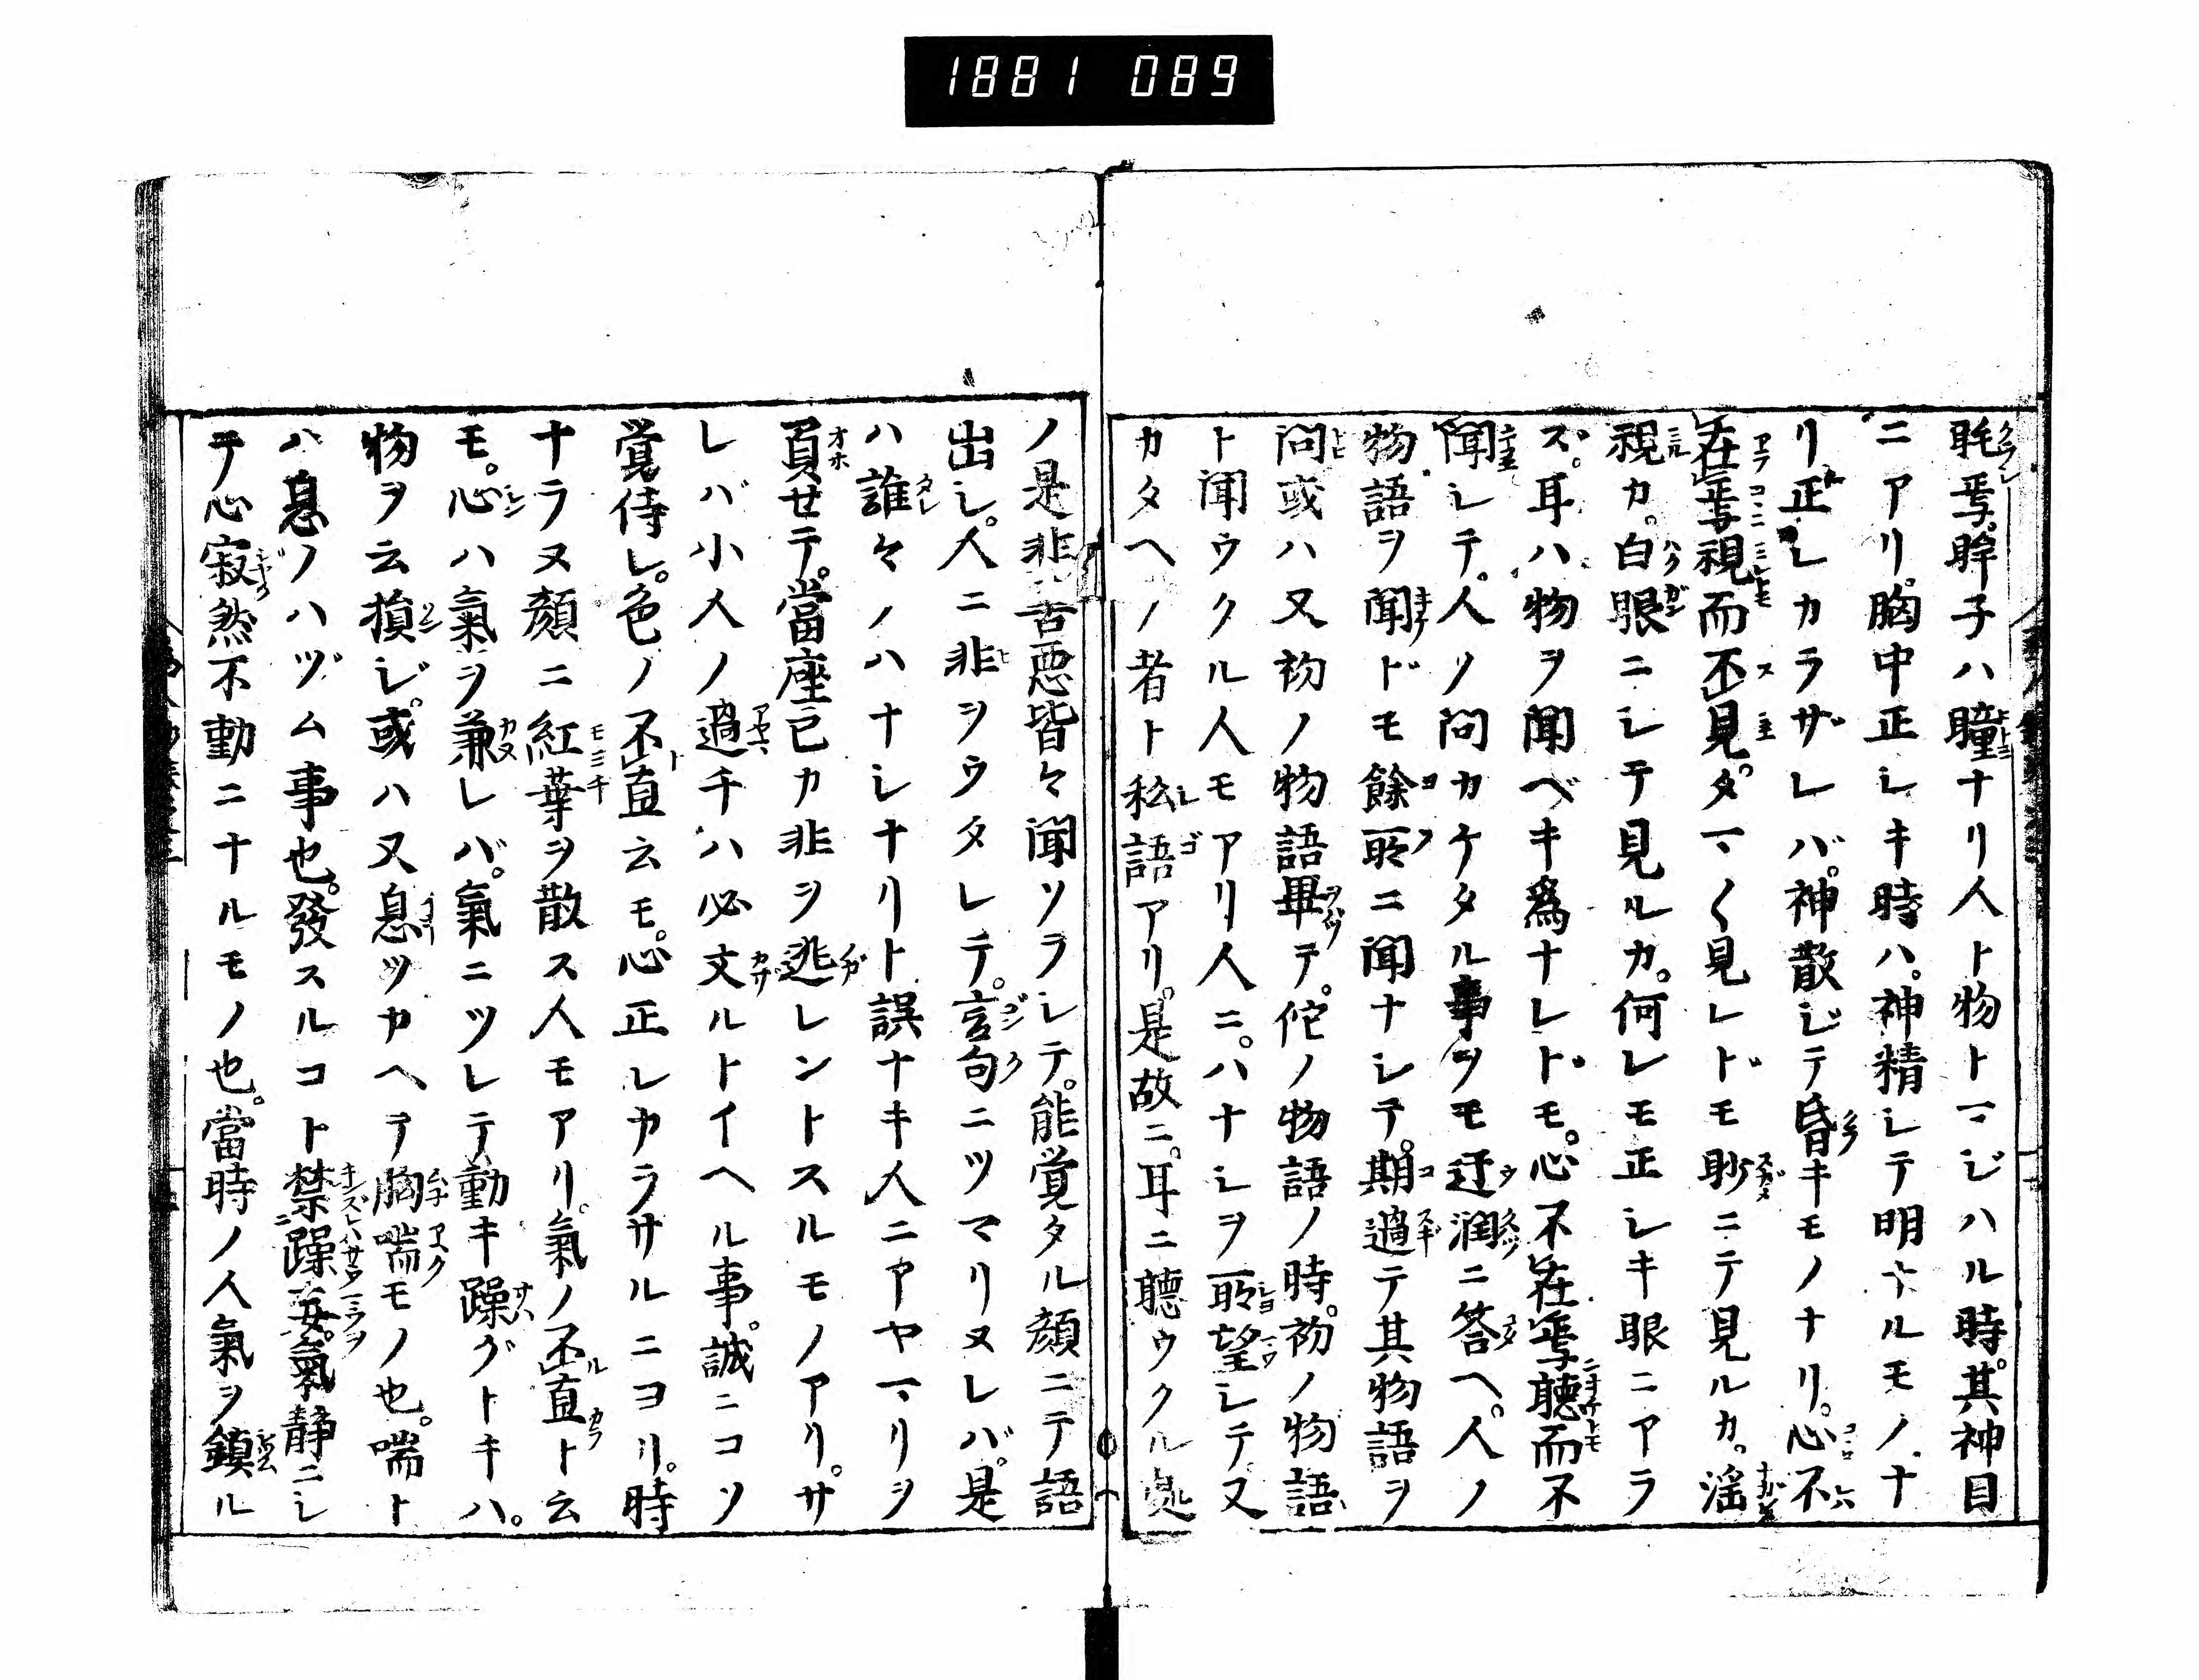 1881 089
眊焉眸子ハ瞳ナリ人ト物トマジハル時其神目
ニアリ胸中正シキ時ハ神精シテ明ナルモノナ
リ正シカラザレバ神散ジテ昏キモノナリ心不
在焉視而不見タマ〱見レドモ眇ニテ見ルカ淫
視カ白眼ニシテ見ルカ何レモ正シキ眼ニアラ
ズ耳ハ物ヲ聞ベキ為ナレドモ心不在焉聴而不
聞シテ人ノ問カケタル事ヲモ迂濶ニ答ヘ人ノ
物語ヲ聞ドモ餘所ニ聞ナシテ期過テ其物語ヲ
問或ハ又初ノ物語畢テ佗ノ物語ノ時初ノ物語
ト聞ウクル人モアリ人ニハナシヲ所望シテ又
カタヘノ者ト私語アリ是故ニ耳ニ聴ウクル処
ノ是非善悪皆々聞ソラシテ能覚タル顔ニテ語
出シ人ニ非ヲウタレテ言句ニツマリヌレバ是
ハ誰々ノハナシナリト誤ナキ人ニアヤマリヲ
負せテ當座已カ非ヲ逃レントスルモノアリサ
レバ小人ノ過チハ必文ルトイヘル事誠ニコソ
覚侍レ色ノ不直云モ心正シカラサルニヨリ時
ナラヌ顔ニ紅葉ヲ散ス人モアリ氣ノ不直ト云
モ心ハ氣ヲ兼レバ氣ニツレテ動キ躁グトキハ
物ヲ云損ジ或ハ又息ツカヘテ胸喘モノ也喘ト
ハ息ノハヅム事也發スルコト禁躁妄氣静ニシ
テ心寂然不動ニナルモノ也當時ノ人氣ヲ鎮ル